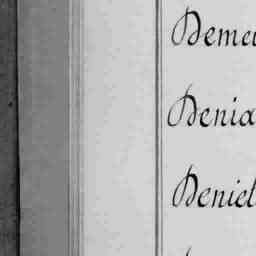 Demeu
Denia
Deniel